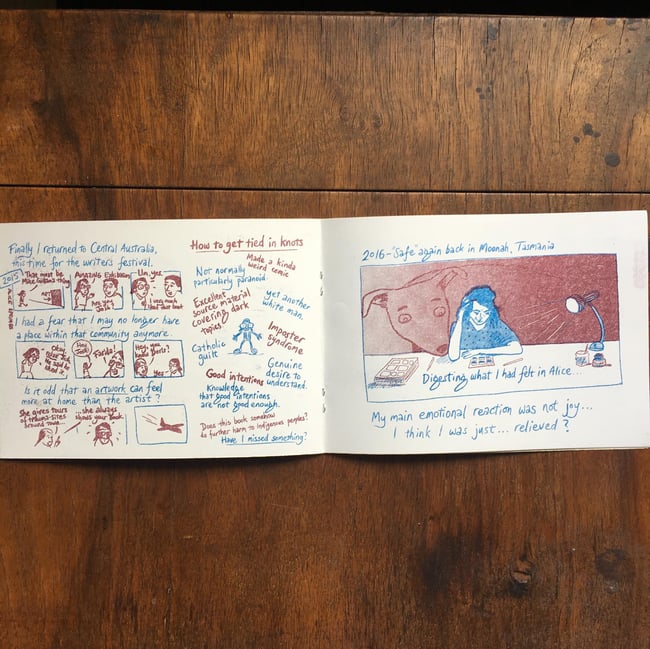 Finally I returned to Central Australia,
this time for the writers festival.
2015
ALICE SPRINGS
That must be
AMAZING Exhibition!
Um, yes
I very much
I had a fear that I may no longer have
a place within that community anymore.
Farida?
Yes
Is it odd that an artwork can feel
more at home than the artist?
She gives tours
of trauma-sites
around town...
... she always
shows your book
How to get tied in knots
Made a kinda
weird comic
Not normally
particularly paranoid.
Excellent
source material
covering dark
topics
yet another
white man.
Imposter
syndrome
Catholic
guilt
Genuine
desire to
understand.
Good intentions
Knowledge
that good intentions
are not good enough.
Does this book somehow
do further harm to Indigenous peoples?
Have I missed something?
2016 - "Safe" again back in Moonah, Tasmania
Digesting what I had felt in Alice...
My main emotional reaction was not joy...
I think I was just... relieved?